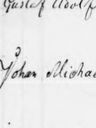 Gustaf Adolf
Johan Michae